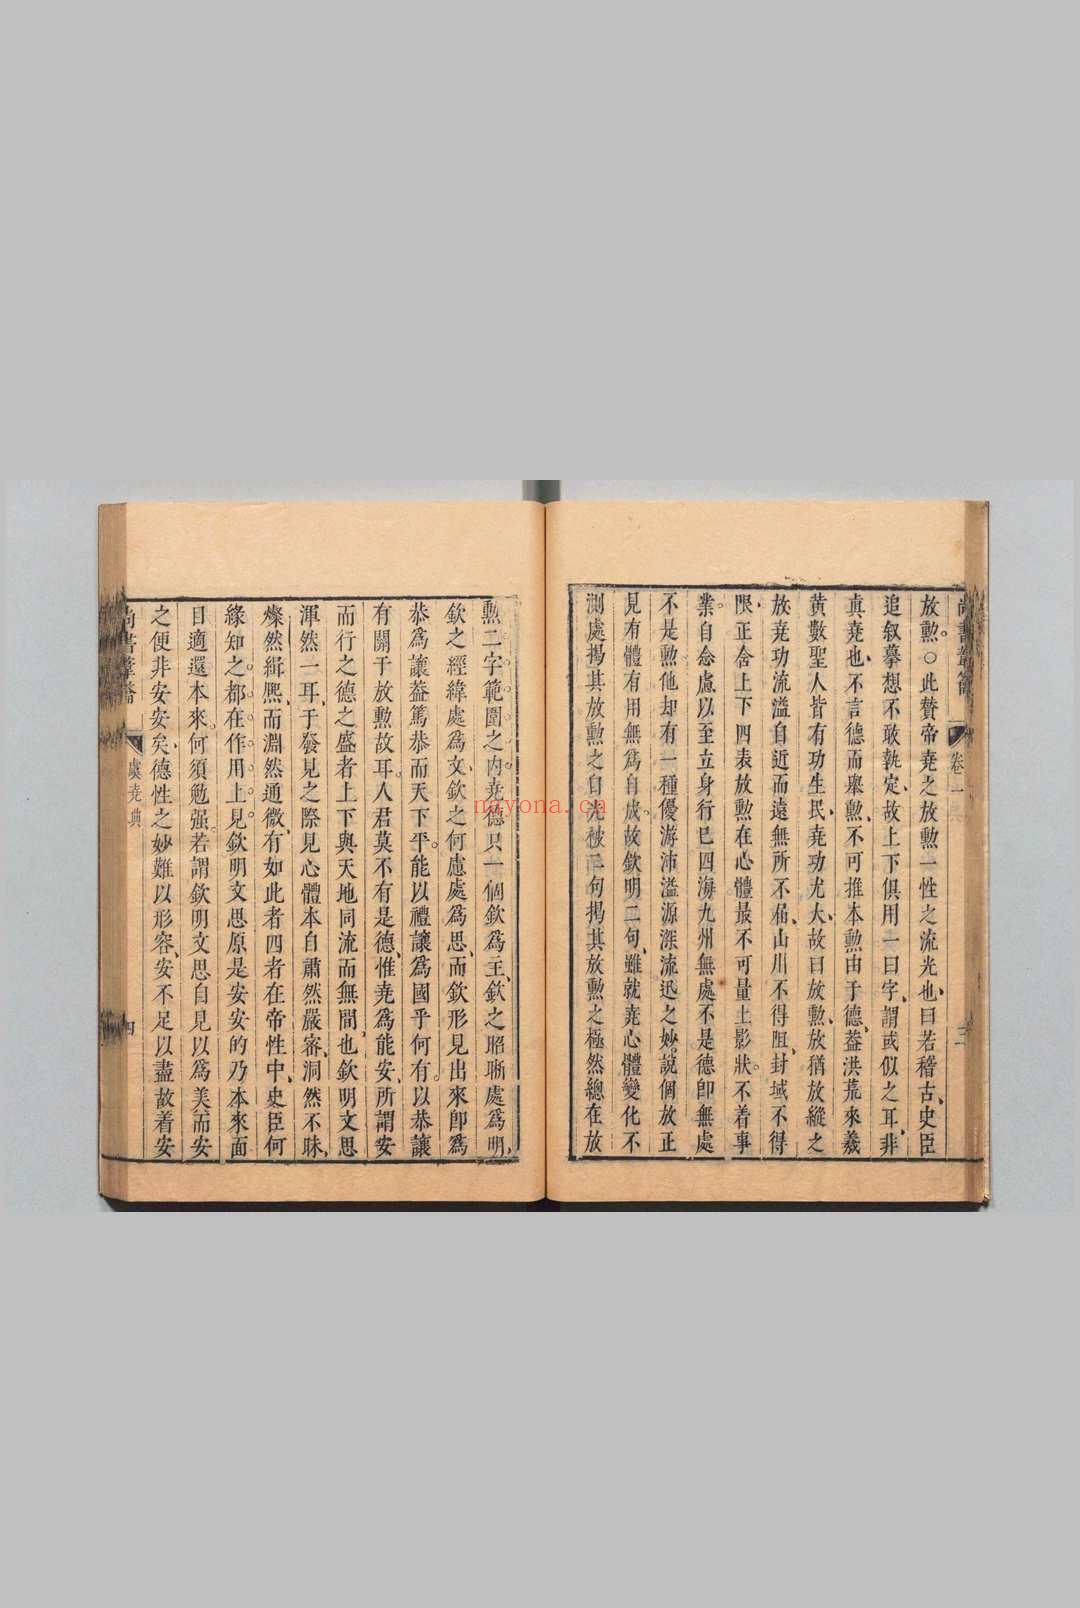 卷一
放勲○此賛帝堯之放勲一性之流光也曰若稽古史臣
追叙摹想不敢執定故上下俱用一曰字謂或似之耳非
真堯也不言德而舉勲不可推本勲由于德葢洪荒來羲
黄數聖人皆有功生民堯功尤大故曰放勲放猶放縱之
放堯功流溢自近而遠無所不届山川不得阻封域不得
限正舍上下四表放勲在心體最不可量上影狀不着事
業自念慮以至立身行已四海九州無處不是德卽無處
不是勲他却有一種優游沛溢源深流迅之妙說個放正
見有體有用無爲自成故欽明二句雖就堯心體變化不
測處揭其放勲之自光被三句揭其放勲之極然總在放
勲二字範圍之内堯德只一個欽爲主欽之昭晰處爲明
欽之經緯處爲文欽之何慮處爲思而欽形見出來卽爲
恭爲讓葢篤恭而天下平能以禮讓爲國乎何有以恭讓
有關于放勲故耳人君莫不有是德惟堯爲能安所謂安
而行之德之盛者上下與天地同流而無間也欽明文思
渾然一耳于發見之際見心體本自肅然嚴密洞然不昧
燦然緝熙而淵然通微有如此者四者在帝性中史臣何
緣知之都在作用上見欽明文思原是安安的乃本來面
目適還本來何須勉强若謂欽明文思自見以爲美而安
之便非安安矣德性之妙難以形容安不足以盡故着安
虞堯典
四
nayona.ca